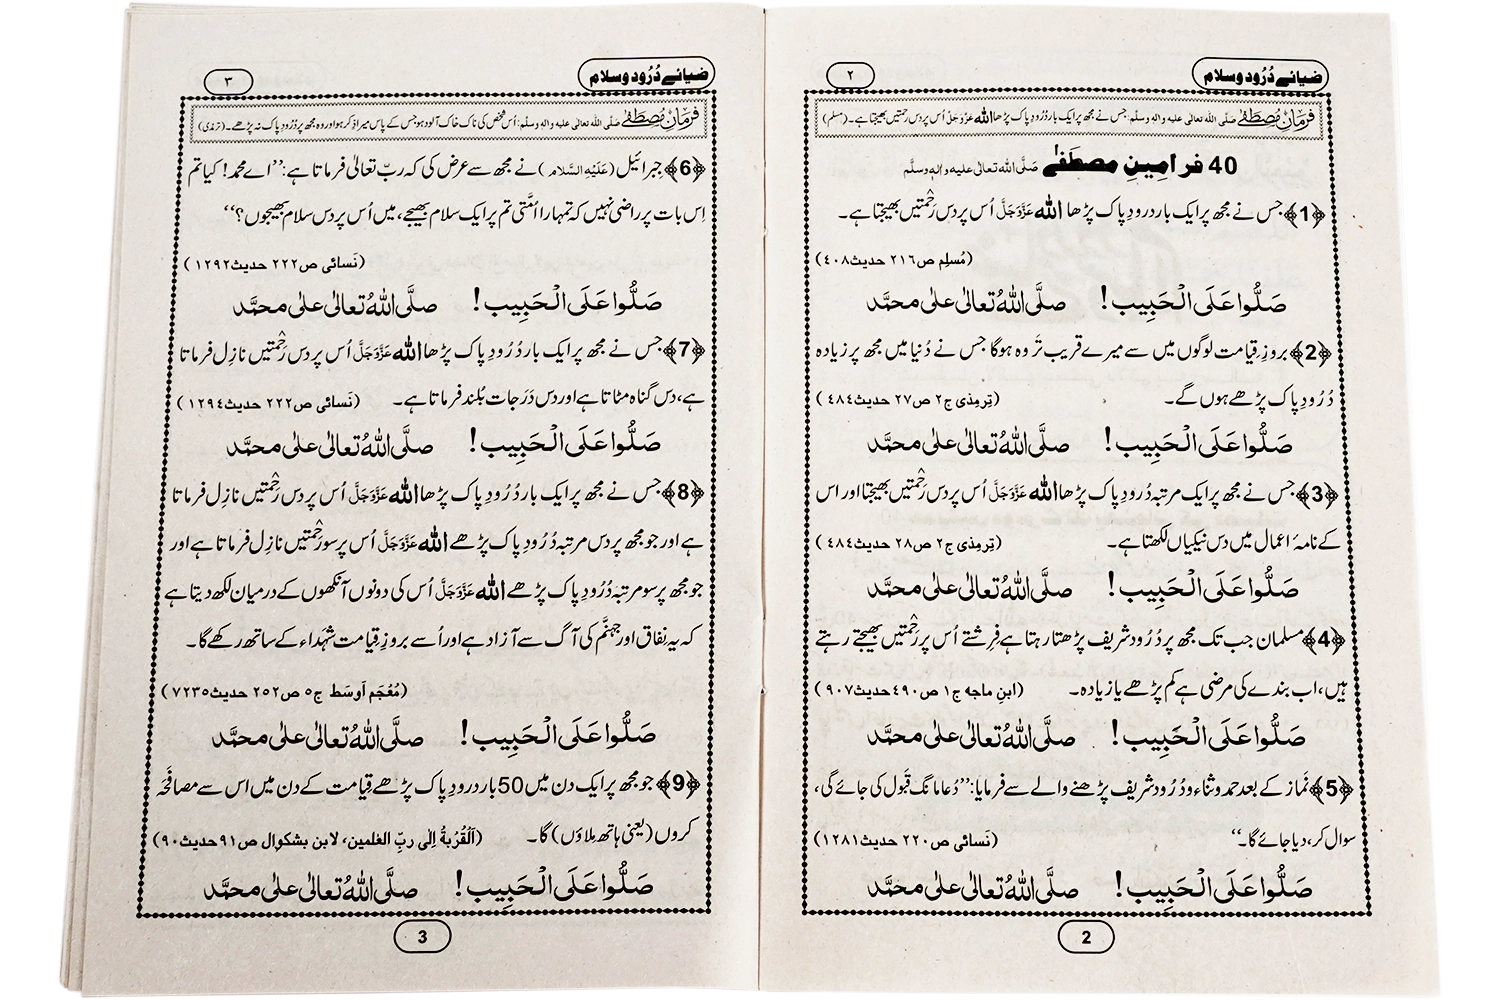 ضیائے دُرُود و سلام
۲
فرمانِ مصطفٰے صلی اللہ تعالٰی علیہ والہٖ وسلم: جس نے مجھ پر ایک بار دُرُودِ پاک پڑھا اللہ عَزَّوَجَلَّ اُس پر دس رحمتیں بھیجتا ہے۔ (مسلم)
40 فرامینِ مصطفٰے صَلَّی اللہ تعالٰی علیہ والہٖ وسلَّم
﴿1﴾ جس نے مجھ پر ایک بار درودِ پاک پڑھا اللہ عَزَّوَجَلَّ اُس پر دس رَحْمتیں بھیجتا ہے۔
(مُسلِم ص۲۱٦ حدیث۴۰۸)
صَلُّوا عَلَی الْحَبِیب! صلَّی اللہُ تعالٰی علٰی محمَّد
﴿2﴾ بروزِ قِیامت لوگوں میں سے میرے قریب تَر وہ ہوگا جس نے دُنیا میں مجھ پر زیادہ
دُرُودِ پاک پڑھے ہوں گے۔ (تِرمِذی ج۲ ص۲۷ حدیث۴۸۴)
صَلُّوا عَلَی الْحَبِیب! صلَّی اللہُ تعالٰی علٰی محمَّد
﴿3﴾ جس نے مجھ پر ایک مرتبہ دُرُودِ پاک پڑھا اللہ عَزَّوَجَلَّ اُس پر دس رَحْمتیں بھیجتا اور اس
کے نامۂ اعمال میں دس نیکیاں لکھتا ہے۔ (تِرمِذی ج۲ ص۲۸ حدیث۴۸۴)
صَلُّوا عَلَی الْحَبِیب! صلَّی اللہُ تعالٰی علٰی محمَّد
﴿4﴾ مسلمان جب تک مجھ پر دُرُود شریف پڑھتا رہتا ہے فِرِشتے اُس پر رَحْمتیں بھیجتے رہتے
ہیں، اب بندے کی مرضی ہے کم پڑھے یا زیادہ۔ (ابنِ ماجہ ج۱ ص۴۹۰ حدیث۹۰۷)
صَلُّوا عَلَی الْحَبِیب! صلَّی اللہُ تعالٰی علٰی محمَّد
﴿5﴾ نَماز کے بعد حمد و ثناء و دُرُود شریف پڑھنے والے سے فرمایا: ’’دُعا مانگ قَبول کی جائے گی،
سوال کر، دیا جائے گا۔‘‘ (نَسائی ص۲۲۰ حدیث۱۲۸۱)
صَلُّوا عَلَی الْحَبِیب! صلَّی اللہُ تعالٰی علٰی محمَّد
2
ضیائے دُرُود و سلام
۳
فرمانِ مصطفٰے صلی اللہ تعالٰی علیہ والہٖ وسلم: اُس شخص کی ناک خاک آلود ہو جس کے پاس میرا ذِکر ہو اور وہ مجھ پر دُرُودِ پاک نہ پڑھے۔ (ترمذی)
﴿6﴾ جبرائیل (عَلَیْہِ السَّلام) نے مجھ سے عرض کی کہ ربّ تعالیٰ فرماتا ہے: ’’اے محمد! کیا تم
اِس بات پر راضی نہیں کہ تمہارا اُمَّتی تم پر ایک سلام بھیجے، میں اُس پر دس سلام بھیجوں؟‘‘
(نَسائی ص۲۲۲ حدیث۱۲۹۲)
صَلُّوا عَلَی الْحَبِیب! صلَّی اللہُ تعالٰی علٰی محمَّد
﴿7﴾ جس نے مجھ پر ایک بار دُرُودِ پاک پڑھا اللہ عَزَّوَجَلَّ اُس پر دس رَحْمتیں نازِل فرماتا
ہے، دس گناہ مٹاتا ہے اور دس دَرَجات بُلند فرماتا ہے۔ (نَسائی ص۲۲۲ حدیث۱۲۹۴)
صَلُّوا عَلَی الْحَبِیب! صلَّی اللہُ تعالٰی علٰی محمَّد
﴿8﴾ جس نے مجھ پر ایک بار دُرُودِ پاک پڑھا اللہ عَزَّوَجَلَّ اُس پر دس رَحْمتیں نازِل فرماتا
ہے اور جو مجھ پر دس مرتبہ دُرُودِ پاک پڑھے اللہ عَزَّوَجَلَّ اُس پر سو رَحْمتیں نازِل فرماتا ہے اور
جو مجھ پر سو مرتبہ دُرُودِ پاک پڑھے اللہ عَزَّوَجَلَّ اُس کی دونوں آنکھوں کے درمیان لکھ دیتا ہے
کہ یہ نِفاق اور جہنَّم کی آگ سے آزاد ہے اور اُسے بروزِ قِیامت شُہَداء کے ساتھ رکھے گا۔
(مُعْجَم اَوسَط ج۵ ص۲۵۲ حدیث۷۲۳۵)
صَلُّوا عَلَی الْحَبِیب! صلَّی اللہُ تعالٰی علٰی محمَّد
﴿9﴾ جو مجھ پر ایک دن میں 50 بار درودِ پاک پڑھے قِیامت کے دن میں اس سے مصافَحَہ
کروں (یعنی ہاتھ ملاؤں) گا۔ (اَلْقُرْبۃُ اِلٰی ربِّ العٰلمین، لابن بشکوال ص۹۱ حدیث۹۰)
صَلُّوا عَلَی الْحَبِیب! صلَّی اللہُ تعالٰی علٰی محمَّد
3